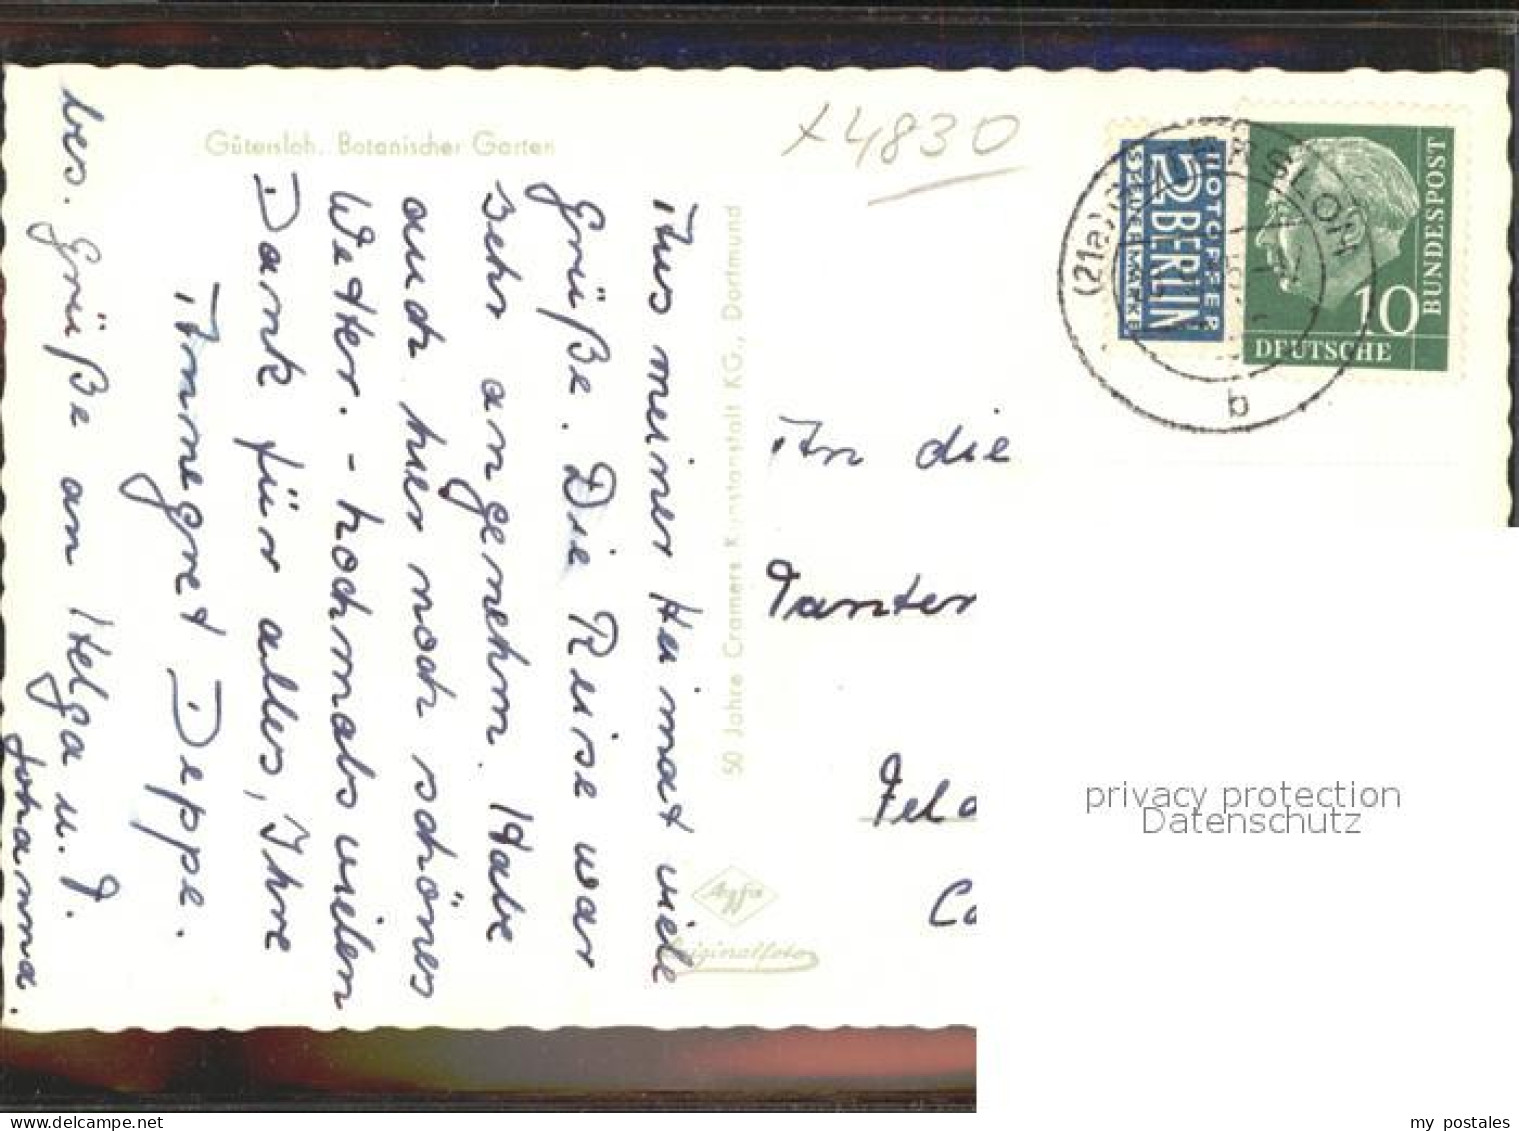 Gütersloh. Botanischer Garten
+4830
Aus meiner Heimat viele
Grüße. Die Reise war
sehr angenehm. Habe
auch hier noch schönes
Wetter. - Nochmals vielen
Dank für alles, Ihre
Annegret Deppe.
bes. Grüße an Helga u. T.
Johanna.
50 Jahre Cramers Kunstanstalt KG., Dortmund
Agfa
Originalfoto
NOTOPFER
2 BERLIN
STEUERMARKE
BUNDESPOST
10
DEUTSCHE
(21a) GÜTERSLOH
b
An die
Tanten
Feld
Co
privacy protection
Datenschutz
my postales
www.delcampe.net